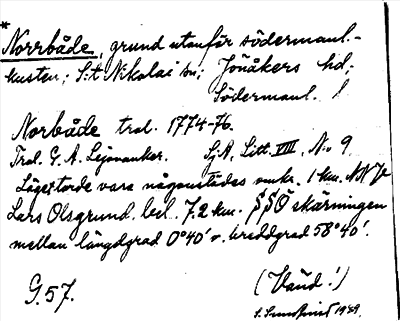 *
Norrbåde, grund utanför södermanl.-
kusten; S:t Nikolai sn; Jönåkers hd;
Södermanl. /
Norbåde tral. 1774-76.
Tral. G. A. Lejonanker. SjA, Litt. VIII, No 9
Läget torde vara någonstädes omkr. 1 km. NNV
Lars Olsgrund, bel. 7.2 km. SSÖ skärningen
mellan längdgrad 0°40' o. breddgrad 58°40'.
G. 57. (Vänd!)
1949